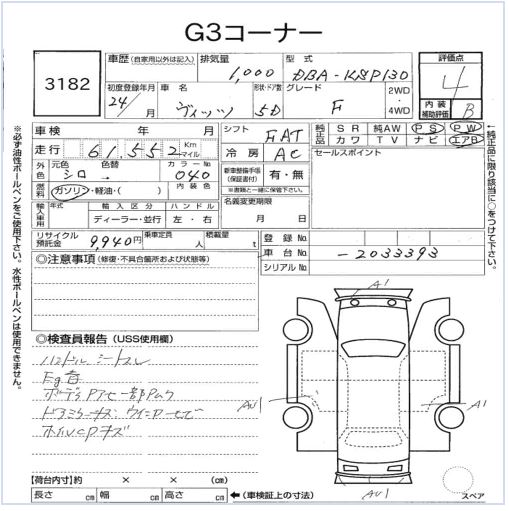 G3コーナー
3182
車歴 (自家用以外は記入) 排気量 1,000 型式 DBA-KSP130
評価点 4
内装補助評価 B
初度登録年月 24/ 月 車名 ヴィッツ 形状・ドア数 5D グレード F 2WD・4WD
車検 年 月 シフト FAT 純正品 SR 純AW PS PW
走行 61,552 Km マイル 冷房 AC カワ TV ナビ エアB
外色 元色 シロ→ 色替 カラーNo 040 新車整備手帳(保証書付) 有・無 セールスポイント
※書類と一緒に保管下さい。
燃料 ガソリン・軽油・( ) 内装色 名義変更期限 月 日
輸入車用 年式 輸入区分 ディーラー・並行 ハンドル 左・右
リサイクル預託金 9,940円 乗車定員 人 積載量 t 登録No.
車台No. -2033393
シリアルNo.
◎注意事項 (修復・不具合箇所および状態等)
◎検査員報告 (USS使用欄)
Eg音
A1
AU1
A1
AU1
スペア
【荷台内寸】約 × × (cm)
長さ cm 幅 cm 高さ cm ←(車検証上の寸法)
※必ず油性ボールペンをご使用下さい。水性ボールペンは使用できません。
←純正品に限り該当に○をつけて下さい。